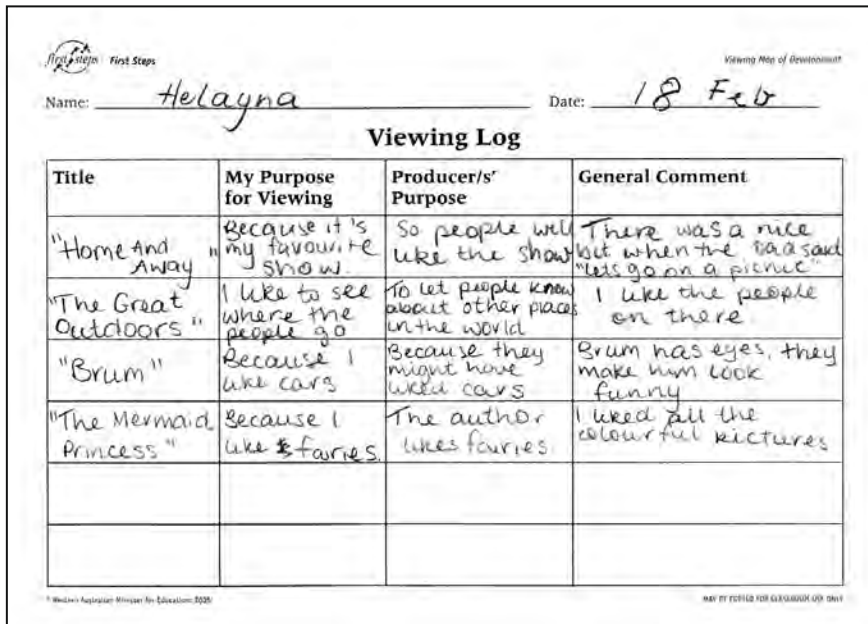 first steps First Steps
Viewing Map of Development
Name: Helayna
Date: 18 Feb
Viewing Log
Title
My Purpose
for Viewing
Producer/s'
Purpose
General Comment
"Home And
Away"
Because it's
my favourite
show.
So people will
like the show
There was a nice
bit when the dad said
"lets go on a picnic"
"The Great
Outdoors"
I like to see
where the
people go
To let people know
about other places
in the world
I like the people
on there
"Brum"
Because I
like cars
Because they
might have
liked cars
Brum has eyes, they
make him look
funny
"The Mermaid
Princess"
Because I
like fairies.
The author
likes fairies.
I liked all the
colourful pictures
Western Australian Minister for Education 2005
MAY BE COPIED FOR CLASSROOM USE ONLY